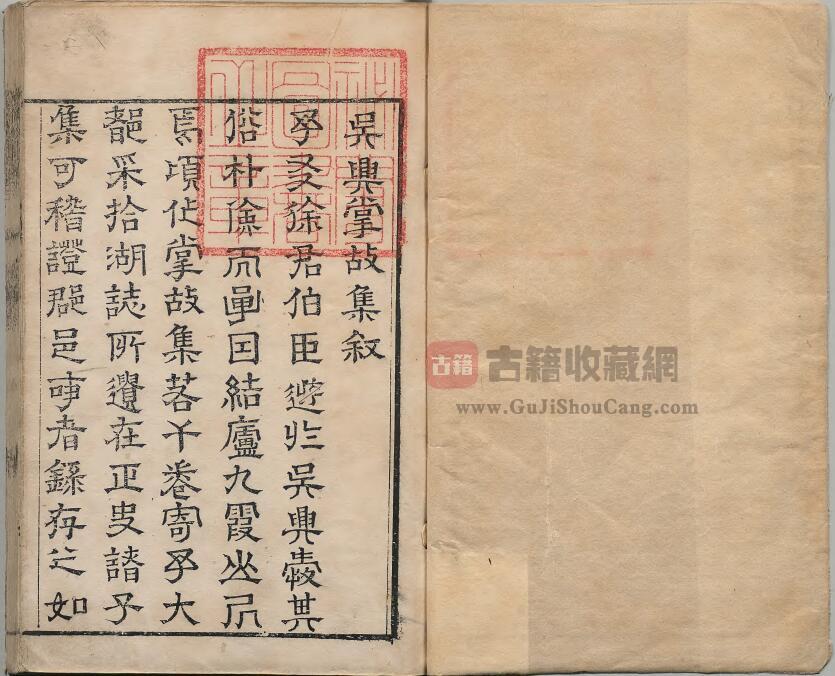 吳興掌故集叙
予友徐君伯臣遊於吳興愛其
俗朴儉因結廬九霞山
焉頃作掌故集若干卷寄予大
都采拾湖誌所遺在正史諸子
集可稽證郡邑事者錄存之如
古籍
古籍收藏網
www.GuJiShouCang.com